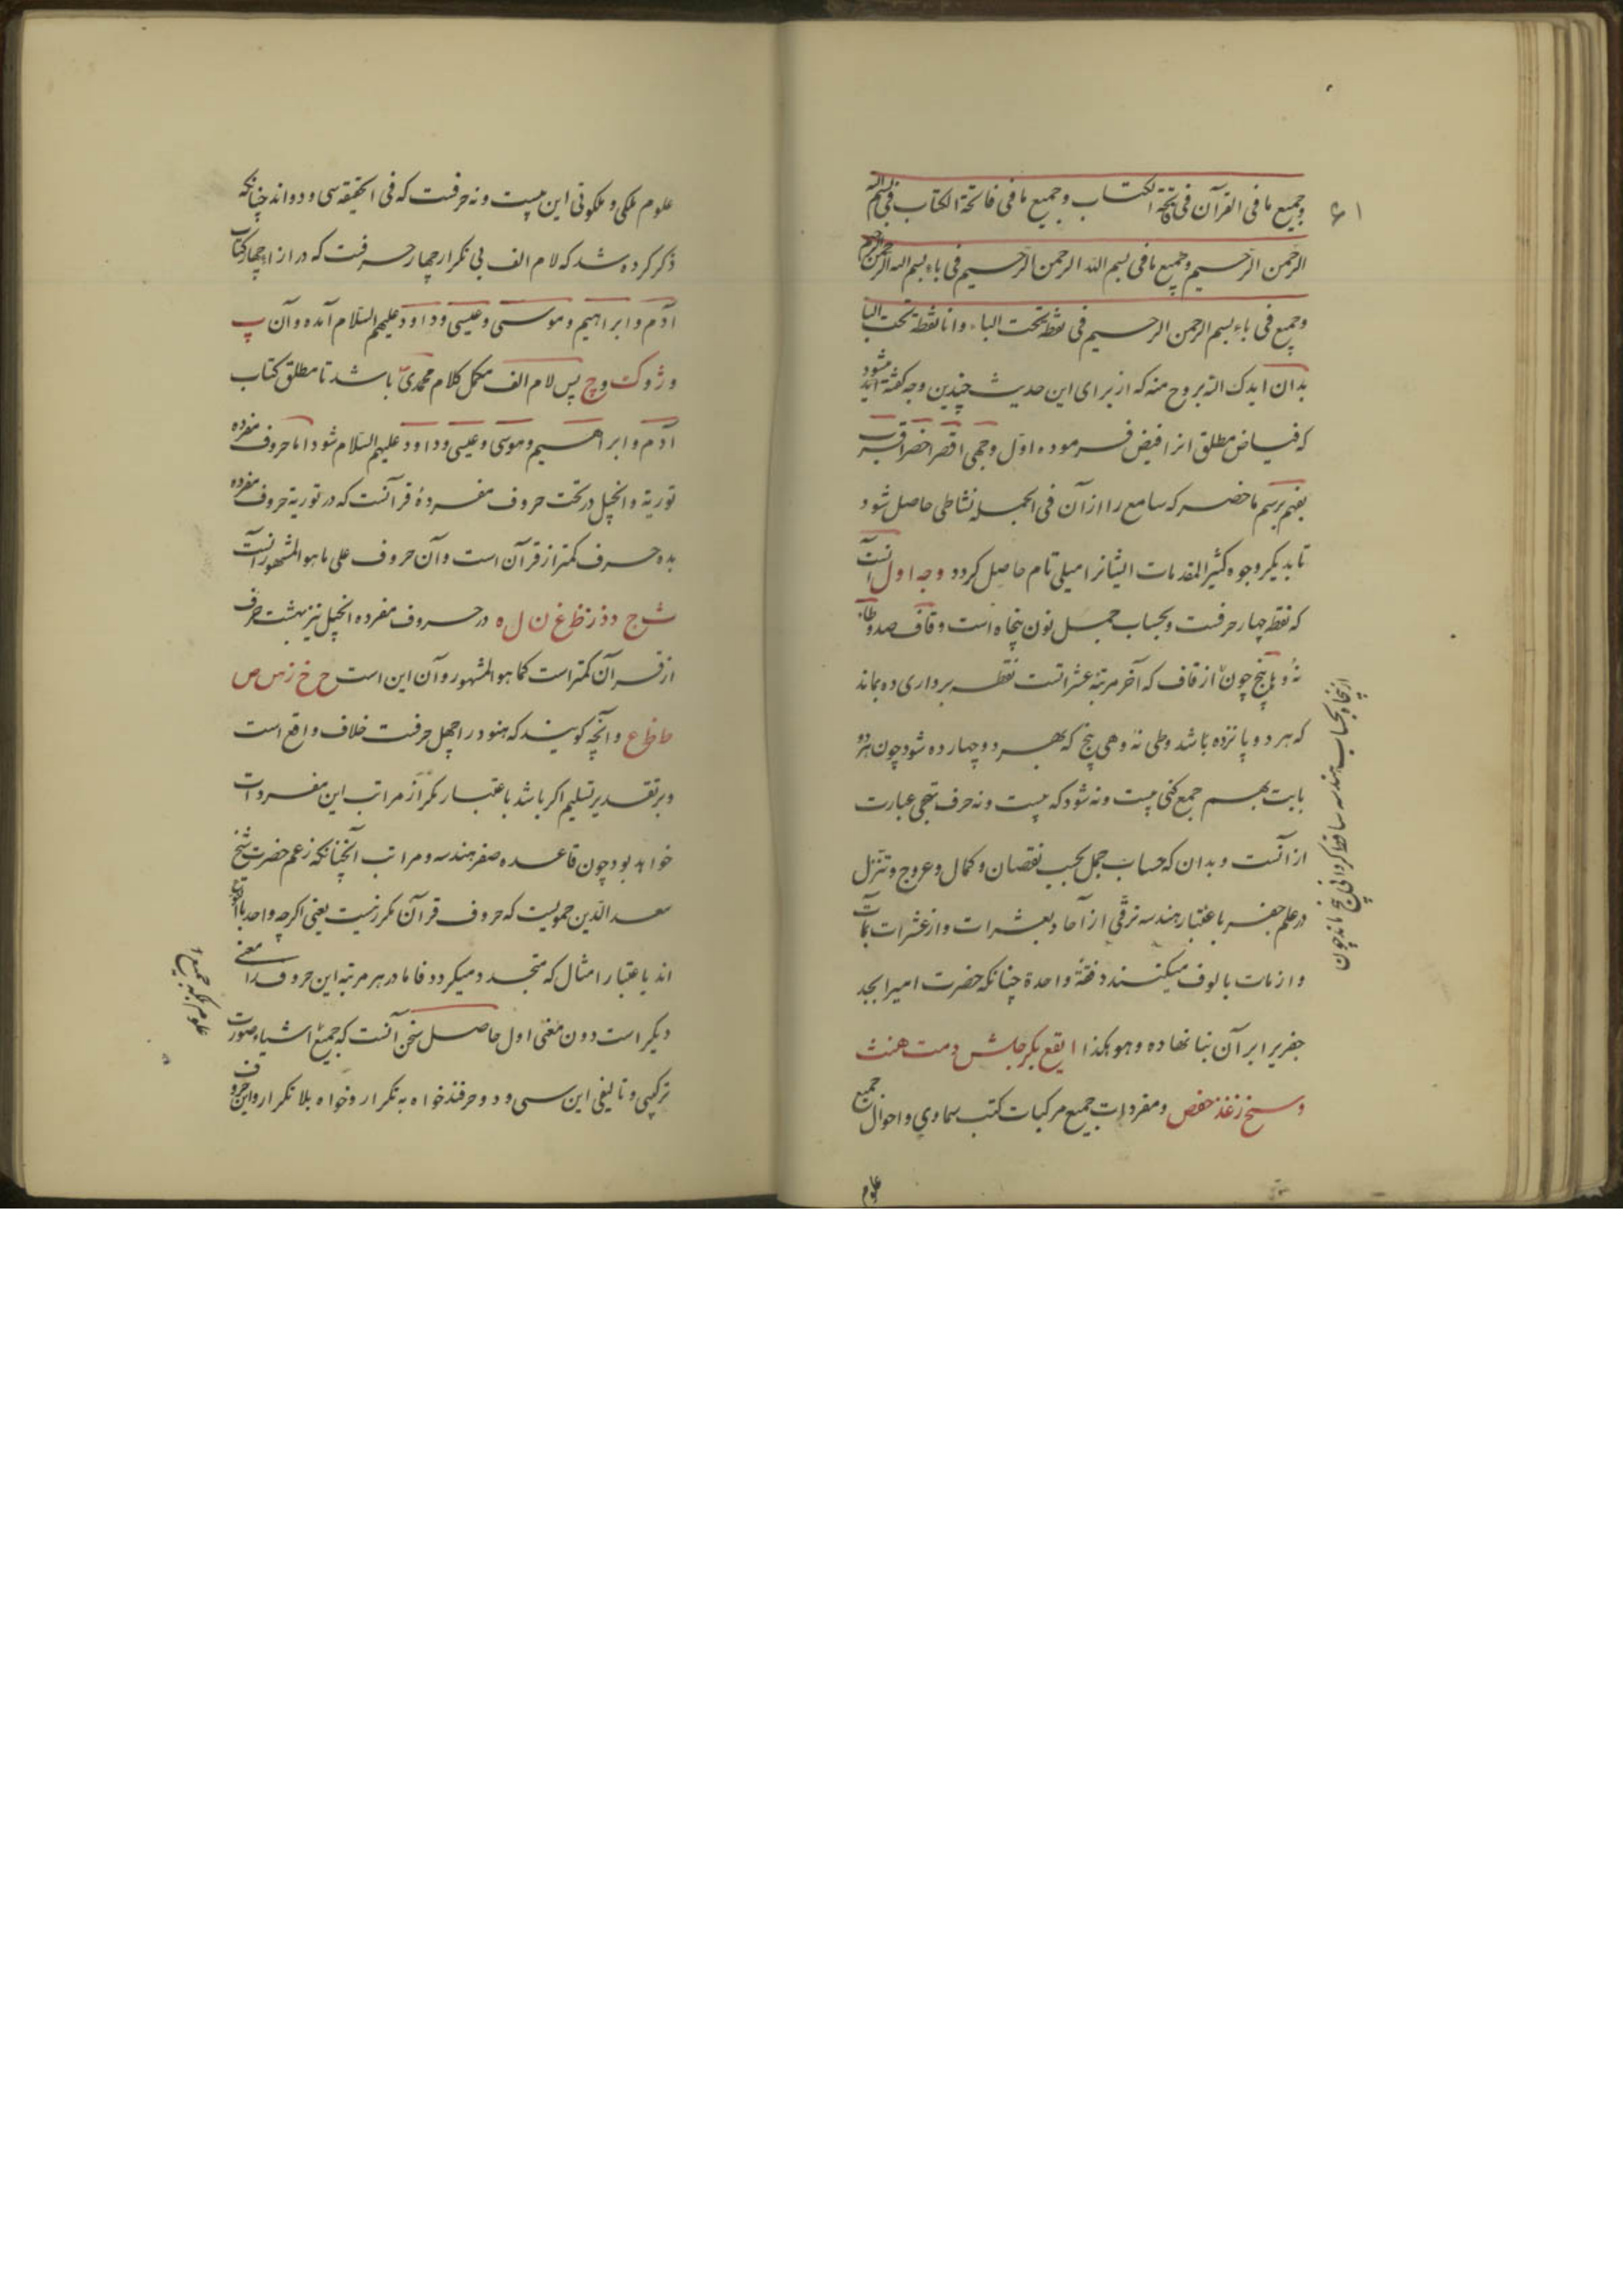 وجمیع ما فی القرآن فی فاتحة الکتاب وجمیع ما فی فاتحة الکتاب فی بسم الله
الرحمن الرحیم وجمیع ما فی بسم الله الرحمن الرحیم فی باء بسم الله الرحمن الرحیم
وجمیع فی باء بسم الرحمن الرحیم فی نقطة تحت الباء وانا نقطة تحت البا
بدان ایدک الله بروح منه که از برای این حدیث چندین وجه گفته اند
که فیاض مطلق انرا فیض فرموده اول وجهی اقصر اخصر اقرب
بفهم برسم ماحضر که سامع را ازآن فی الجمله نشاطی حاصل شود
تا بدیکر وجوه کثیر المقدمات ایشانرا میلی تام حاصل کردد وجه اول انست
که نقطه چهار حرفست وبحساب جمل نون پنجاه است وقاف صد وطا
نه وها پنج چون از قاف که آخر مرتبه عشراتست نقطه برداری ده بماند
که هر دو پانزده باشد وطی نه وهی پنج که بهر دو چهارده شود چون هر دو
بابت بهم جمع کنی بیست ونه شود که بیست ونه حرف تهجی عبارت
از انست وبدان که حساب جمل بحسب نقصان وکمال وعروج وتنزل
در علم جفر باعتبار هندسه ترقی از آحاد بعشرات واز عشرات بمآت
واز مات بالوف میکنند دفعة واحدة چنانکه حضرت امیر ابجد
جفریرا بر آن بنا نهاده وهو هکذا ایقغ بکر جلش دمت هنث
وسخ زعذ حفض ومفردات جمیع مرکبات کتب سماوی واحوال جمیع
علوم
از پنجاه بحساب هندسه ساقط کردانی پنج ماند چون
علوم ملکی وملکوتی این بیست ونه حرفست که فی الحقیقه سی ودواند چنانکه
ذکر کرده شد که لام الف بی تکرار چهار حرفست که در ازاء چهار کتاب
آدم وابراهیم وموسی وعیسی وداود علیهم السلام آمده وآن پ
وژ وک وچ پس لام الف مکمل کلام محمدی باشد تا مطلق کتاب
آدم وابراهیم وموسی وعیسی وداود علیهم السلام شود اما حروف مفرده
توریة وانجیل در تحت حروف مفرده قرآنست که در توریة حروف مفرده
بده حرف کمتر از قرآن است وآن حروف علی ما هو المشهور انست
ش ج د ذ ز ظ غ ن ل ه در حروف مفرده انجیل نیز بهشت حرف
از قرآن کمتر است کما هو المشهور وآن این است ح خ ز س ص
ط ظ ع وآنچه کویند که هنود را چهل حرفست خلاف واقع است
وبر تقدیر تسلیم اکر باشد باعتبار مکرر از مراتب این مفردات
خواهد بود چون قاعده صفر هندسه ومراتب آنچنانکه زعم حضرت شیخ
سعد الدین حمویست که حروف قرآن مکرر نیست یعنی اکرچه واحد
اند باعتبار امثال که متجدد میکردد فاما در هر مرتبه این حروف را معنی
دیکر است دون معنی اول حاصل سخن آنست که جمیع اشیاء صورت
ترکیبی وتالیفی این سی ودو حرفند خواه به تکرار وخواه بلا تکرار واین حروف